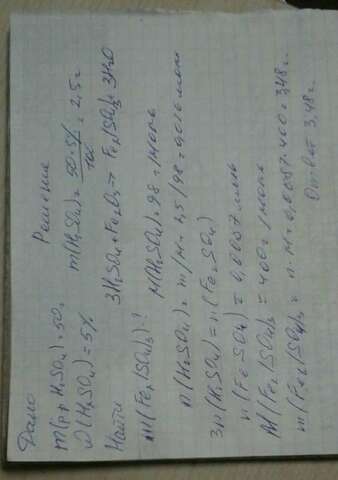 Дано
m(р-р H₂SO₄) = 50г
ω(H₂SO₄) = 5%
Найти
m(Fe₂(SO₄)₃)-?
Решение
m(H₂SO₄) = 50·5% / 100 = 2,5 г
3H₂SO₄ + Fe₂O₃ → Fe₂(SO₄)₃ 3H₂O
M(H₂SO₄) = 98 г/моль
n(H₂SO₄) = m/M = 2,5/98 = 0,026 моль
3n(H₂SO₄) = n(Fe₂SO₄)
n(Fe SO₄) = 0,0087 моль
M(Fe₂(SO₄)₃ = 400г/моль
m(Fe₂(SO₄)₃ = n·M = 0,0087·400 = 3,48 г.
Ответ 3,48 г.